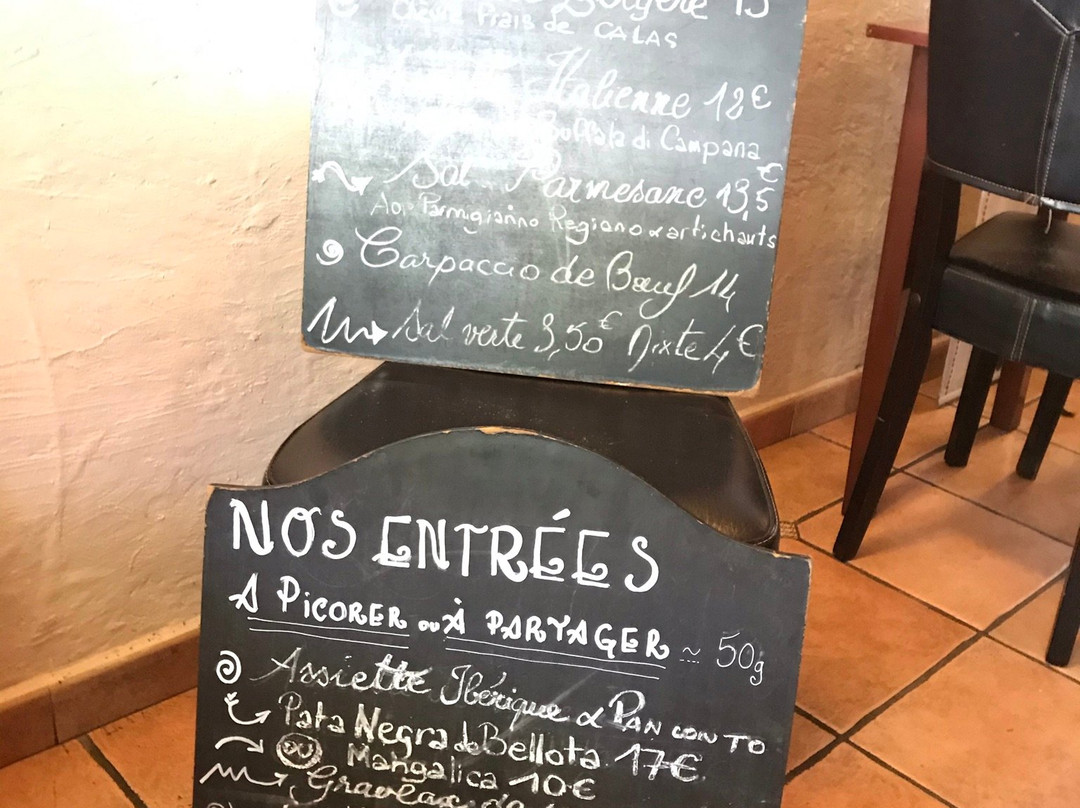 Bergère 13
Chèvre Frais de CALAS
Italienne 12€
Buffala di Campana
Sal. Parmesane 13,5€
Aoi Parmigianno Regiano & artichauts
Carpaccio de Bœuf 14
Sal verte 3,50€ Mixte 4€
NOS ENTRÉES
A PICORER ou À PARTAGER ~ 50g
Assiette Ibérique & PAN CON TO
Pata Negra de Bellota 17€
OU Mangalica 10€
Gravlax